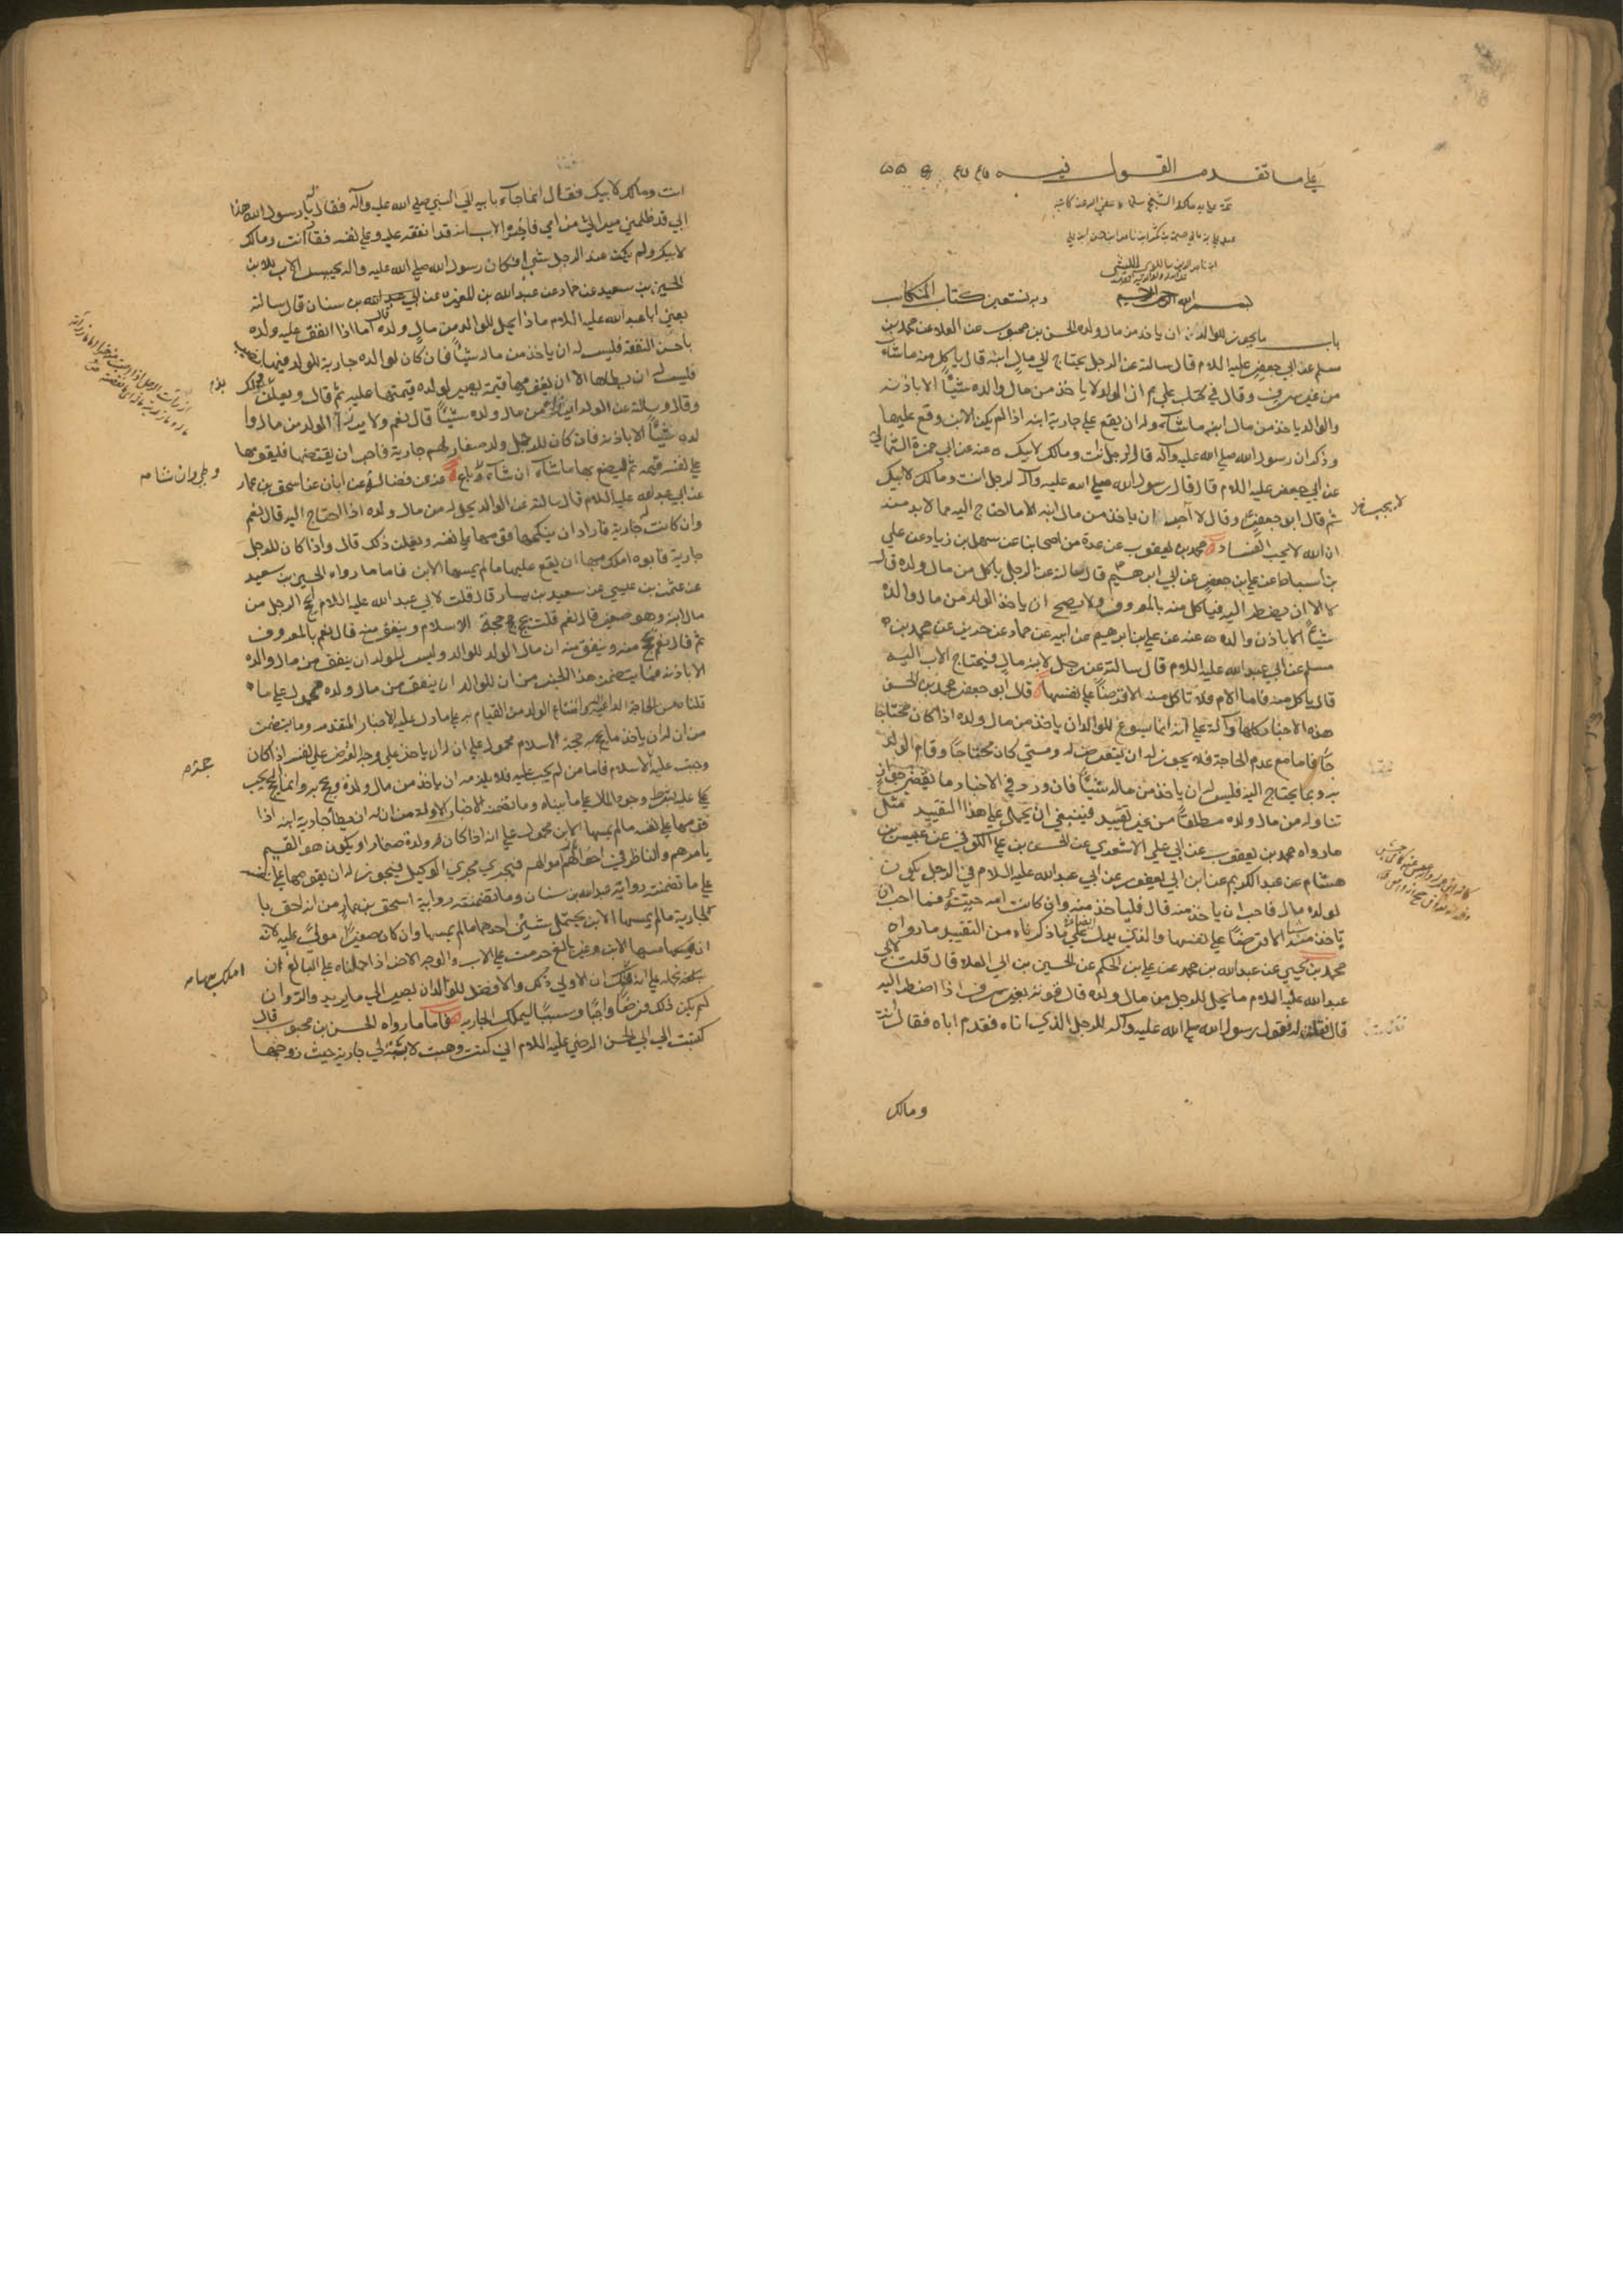 علي ما تقدم القول فيه
بسم الله الرحمن الرحيم وبه نستعين كتاب المكاسب
باب ما يجوز للوالد ان ياخذ من مال ولده الحسن بن محبوب عن العلا عن محمد بن
مسلم عن ابي جعفر عليه السلام قال سالته عن الرجل يحتاج الي مال ابنه قال ياكل منه ماشاء
من غير سرف وقال في كتاب علي ع م ان الولد لا ياخذ من مال والده شيئا الا باذنه
والوالد ياخذ من مال ابنه ماشاء وله ان يقع علي جارية ابنه اذا لم يكن الابن وقع عليها
وذكر ان رسول الله صلي الله عليه وآله قال لرجل انت ومالك لابيك ه عنه عن ابي حمزة الثمالي
عن ابي جعفر عليه السلام قال قال رسول الله صلي الله عليه وآله لرجل انت ومالك لابيك
ثم قال ابو جعفر ع وقال لا احب ان ياخذ من مال ابنه الا ما احتاج اليه مما لا بد منه
ان الله لا يحب الفساد ه محمد بن يعقوب عن عدة من اصحابنا عن سهل بن زياد عن علي
بن اسباط عن علي بن جعفر عن ابي ابرهيم ع قال سالته عن الرجل ياكل من مال ولده قال
لا الا ان يضطر اليه فياكل منه بالمعروف ولا يصح ان ياخذ الولد من مال والده
شيئا الا باذن والده ه عنه عن علي بن ابرهيم عن ابيه عن حماد عن حريز عن محمد بن
مسلم عن ابي عبدالله عليه السلام قال سالته عن رجل لابنه مال فيحتاج الاب اليه
قال ياكل منه فاما الام فلا تاكل منه الا قرضا علي نفسها ه قال ابو جعفر محمد بن الحسن
هذه الاخبار كلها دالة علي انه انما يسوغ للوالد ان ياخذ من مال ولده اذا كان محتاجا
فاما مع عدم الحاجة فلا يجوز له ان يتعرض له ومتي كان محتاجا وقام الولد
به وبما يحتاج اليه فليس له ان ياخذ من ماله شيئا فان ورد في الاخبار ما يقتضي جواز
تناوله من مال ولده مطلقا من غير تقييد فينبغي ان يحمل علي هذا التقييد مثل
مارواه محمد بن يعقوب عن ابي علي الاشعري عن الحسن بن علي الكوفي عن عبيس بن
هشام عن عبد الكريم عن ابن ابي يعفور عن ابي عبدالله عليه السلام في الرجل يكون
لولده مال فاحب ان ياخذ منه قال فلياخذ منه وان كانت امه حية فما احب ان
تاخذ منه شيئا الا قرضا علي نفسها والذي يدل ايضا علي ما ذكرناه من التقييد مارواه
محمد بن يحيي عن عبدالله بن محمد عن علي بن الحكم عن الحسين بن ابي العلا قال قلت لابي
عبدالله عليه السلام ما يحل للرجل من مال ولده قال قوته بغير سرف اذا اضطر اليه
قال فقلت له فقول رسول الله صلي الله عليه وآله للرجل الذي اتاه فقدم اباه فقال انت
ومالك
انت ومالك لابيك فقال انما جاء بابيه الي النبي صلي الله عليه وآله فقال يا رسول الله هذا
ابي قد ظلمني ميراثي من امي فاخبره الاب انه قد انفقه عليه وعلي نفسه فقال انت ومالك
لابيك ولم يكن عند الرجل شي افكان رسول الله صلي الله عليه وآله يحبس الاب للابن
الحسين بن سعيد عن حماد عن عبدالله بن المغيرة عن ابي عبدالله بن سنان قال سالته
يعني ابا عبدالله عليه السلام ماذا يحل للوالد من مال ولده قال اما اذا انفق عليه ولده
باحسن النفقة فليس له ان ياخذ من ماله شيئا فان كان لوالده جارية للولد فيها نصيب
فليس له ان يطاها الا ان يقومها قيمة يصير لولده قيمتها عليه ثم قال ويعلن ذلك
وقال وسالته عن الوالد ايرزا من مال ولده شيئا قال نعم ولا يرزا الولد من مال وا
لده شيئا الا باذنه فان كان للرجل ولد صغار لهم جارية فاحب ان يقتضها فليقومها
علي نفسه قيمة ثم ليصنع بها ماشاء ان شاء وطئ ه عنه عن فضالة عن ابان عن اسحق بن عمار
عن ابي عبدالله عليه السلام قال سالته عن الوالد يحل له من مال ولده اذا احتاج اليه قال نعم
وان كانت له جارية فاراد ان ينكحها قومها علي نفسه ويعلن ذلك قال واذا كان للرجل
جارية فابوه املك بها ان يقع عليها مالم يمسها الابن فاما ما رواه الحسين بن سعيد
عن عثمن بن عيسي عن سعيد بن يسار قال قلت لابي عبد الله عليه السلام ايحج الرجل من
مال ابنه وهو صغير قال نعم قلت يحج حجة الاسلام وينفق منه قال نعم بالمعروف
ثم قال نعم يحج منه وينفق منه ان مال الولد للوالد وليس للولد ان ينفق من مال والده
الا باذنه فما يتضمن هذا الخبر من ان للوالد ان ينفق من مال ولده محمول علي ما
قلناه من الحاجة الداعية وامتناع الولد من القيام به علي مادل عليه الاخبار المتقدمة وما يتضمن
من ان له ان ياخذ ما يحج به حجة الاسلام محمول علي ان له ان ياخذ علي وجه القرض علي نفسه اذا كان
وجبت عليه حجة الاسلام فاما من لم يجب عليه فلا يلزمه ان ياخذ من مال ولده ويحج به وانما يجب
عليه بشرط وجود المال علي ما بيناه وما تضمنه الاخبار الاولة من ان له ان يطأ جارية ابنه اذا
قومها علي نفسه مالم يمسها الابن محمول علي انه اذا كان ولده صغارا ويكون هو القيم
بامرهم والناظر في احوالهم فيجري مجري الوكيل فيجوز له ان يقومها علي نفسه
علي ما تضمنته رواية عبدالله بن سنان وما تضمنته رواية اسحق بن عمار من انه احق با
لجارية مالم يمسها الابن يحتمل شيئين احدهما مالم يمسها وان كان صغيرا مولي عليه لانه
ان مسها الابن وغير بالغ حرمت علي الاب والوجه الاخر اذا حملناه علي البالغ ان
نحمله علي ان الاولي ذلك والافضل للوالد ان يصير الي ما يريد والده وان
لم يكن ذلك فرضا واجبا وسببا لتملك الجارية ه فاما ما رواه الحسن بن محبوب قال
كتبت الي ابي الحسن الرضي عليه السلام اني كنت وهبت لابنة لي جارية حيث زوجتها